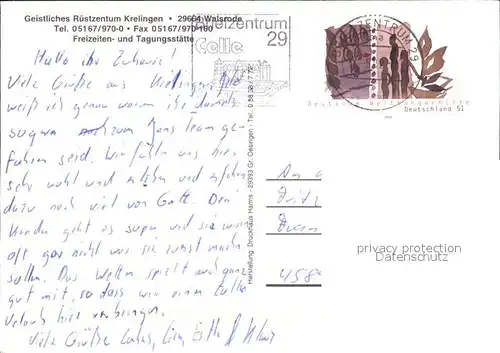 Geistliches Rüstzentrum Krelingen • 29664 Walsrode
Tel. 05167/970-0 • Fax 05167/970-160
Freizeiten- und Tagungsstätte
Briefzentrum
29
Celle
BRIEFZENTRUM 29
Deutsche Welthungerhilfe
Deutschland 51
Hallo ihr Zuhause!
Viele Grüße aus
weiß ich genau warum ihr damals
sogar zum Jons Team ge-
fahren seid. Wir fühlen uns hier
sehr wohl und erleben und erfahren
dazu noch viel von Gott. Den
Kindern geht es super und sie wissen
oft gar nicht was sie zuerst machen
sollen. Das Wetter spielt auch ganz
gut mit, so dass wir einen tollen
Urlaub hier verbringen.
Viele Grüße Lukas, Lisa,
Herstellung: Druckhaus Harms - 29393 Gr. Oesingen - Tel. 0 58 38 / 7 72
An
458
privacy protection
Datenschutz